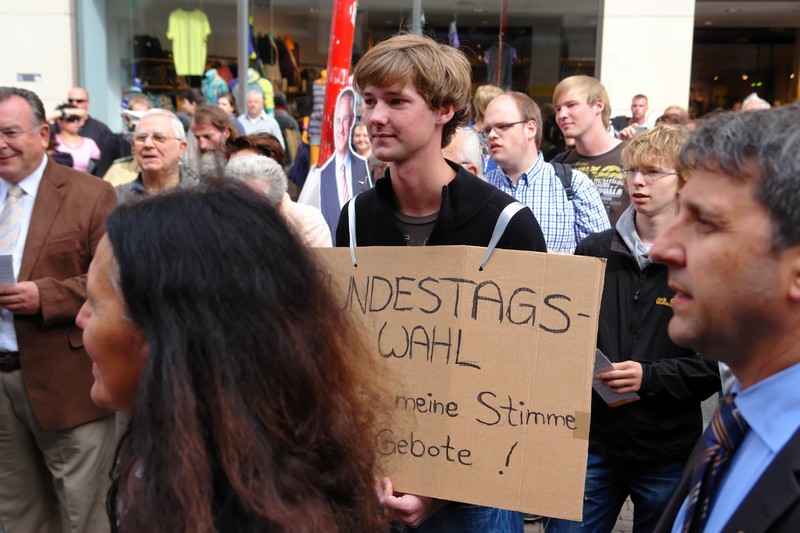 UNDESTAGS-
WAHL
meine Stimme
Gebote !